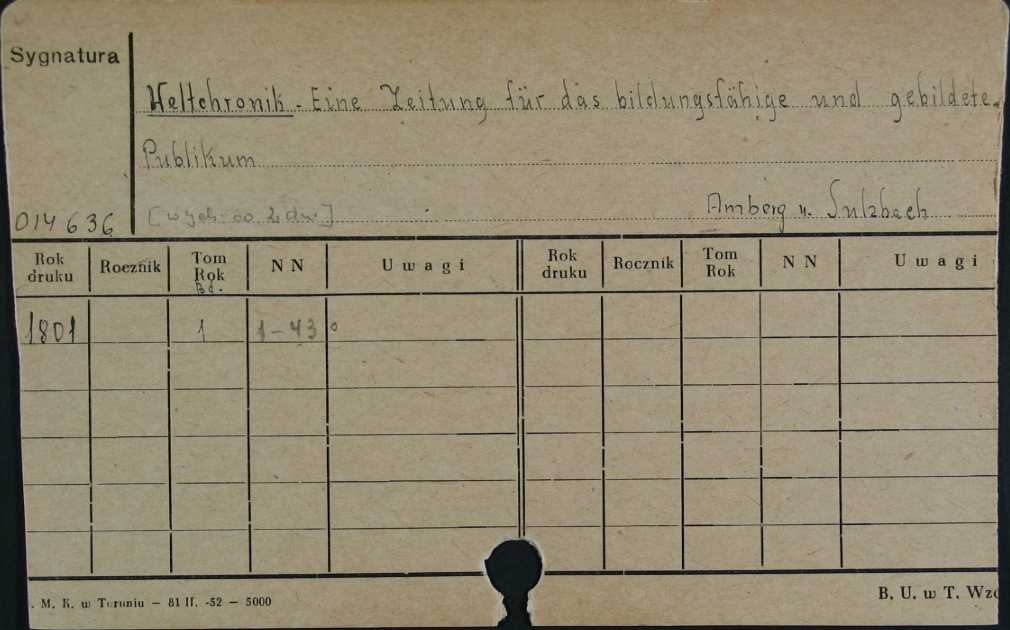 Sygnatura
Weltchronik. Eine Zeitung für das bildungsfähige und gebildete
Publikum
014636 [wych. co 2 dni] Amberg u. Sulzbach
Rok druku Rocznik Tom Rok Bd. N N Uwagi Rok druku Rocznik Tom Rok N N Uwagi
1801 1 1-43
. M. K. w Toruniu — 81 II. -52 — 5000 B. U. w T. Wzó